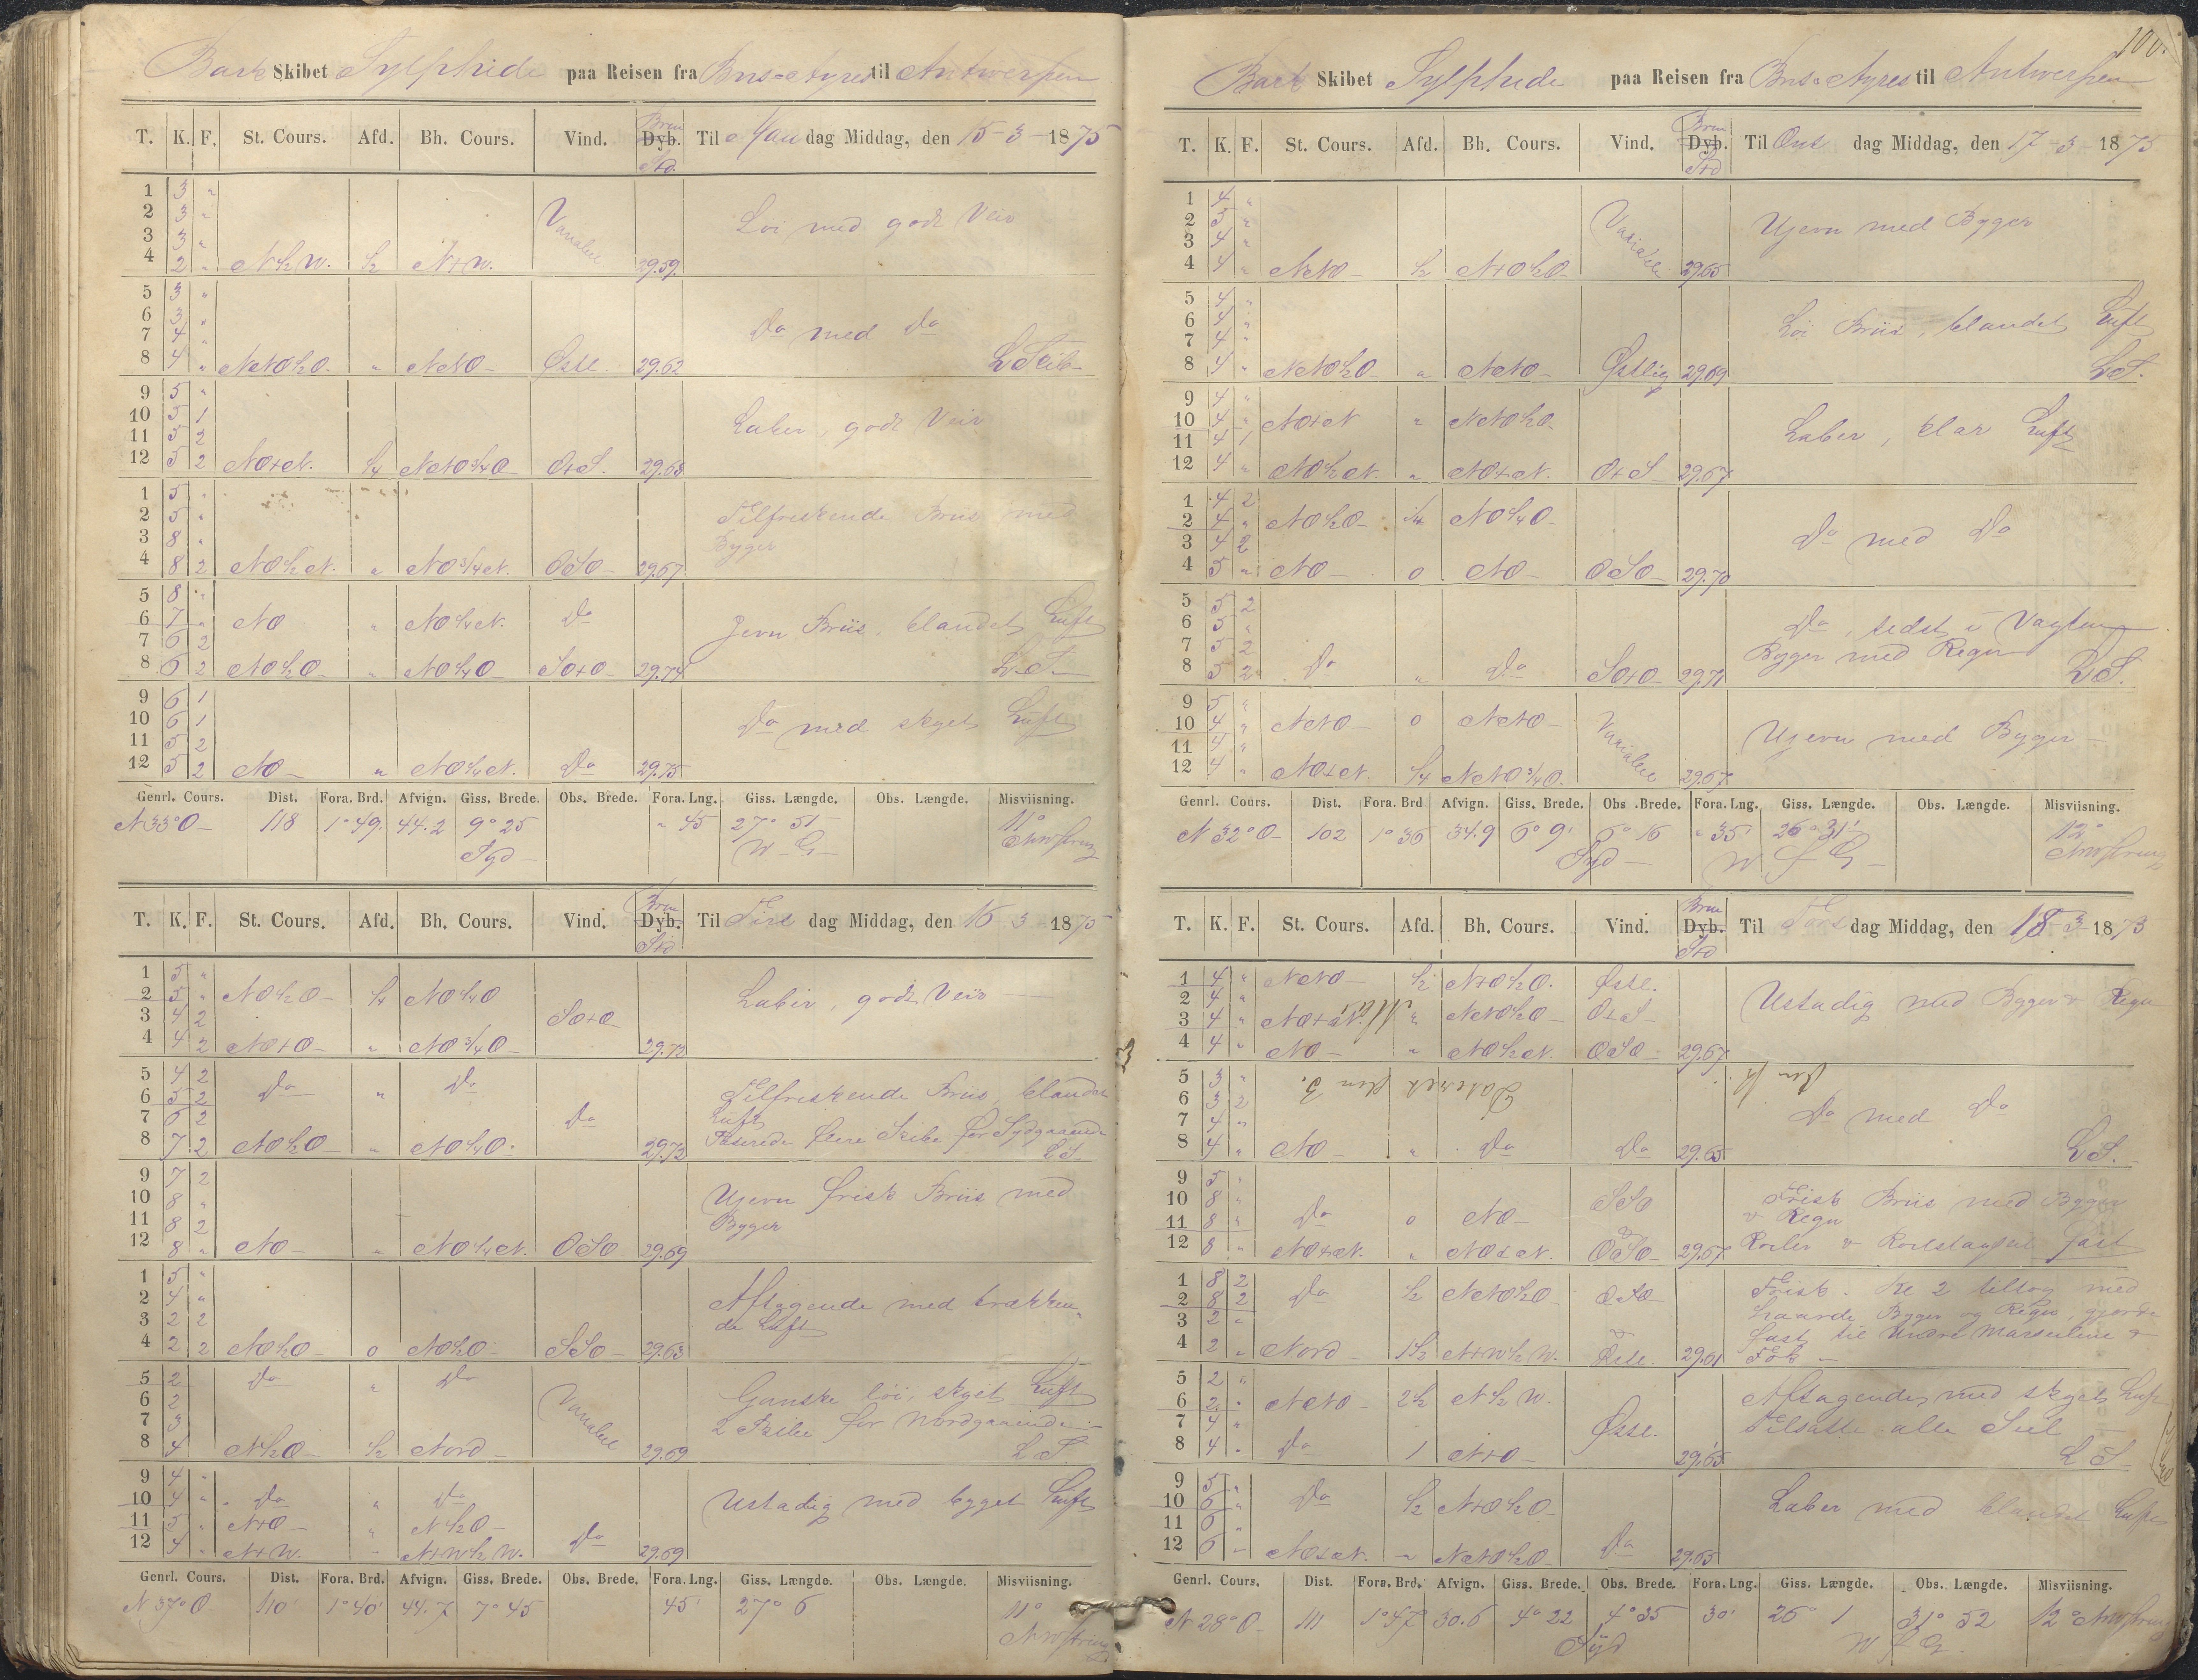 Bark Skibet Sylphide paa Reisen fra Bns-Ayres til Antwerpen
T. K. F. St. Cours. Afd. Bh. Cours. Vind. Dyb. Til Man dag Middag, den 15-3-1875
1 3 "
2 3 " Löi med godt Veir
3 3 " Variabel
4 2 " N½W. ½ NtW. 29.59.
5 3 "
6 3 " Do med Do
7 4 "
8 4 " NNO½O. " NNO Østl. 29.62
9 5 "
10 5 1 Laber, godt Veir
11 5 2
12 5 2 NOtN. ¼ NNO¾O OtS. 29.68
1 5 "
2 5 " Tilfriskende Briis med
3 8 " Byger
4 8 2 NO½N. " NO¾N. OSO 29.67
5 8 "
6 7 " NO " NO¼N. Do
7 6 2 Jevn Briis, blandet Luft
8 6 2 NO½O " NO¼O SOtO 29.74 L.S.
9 6 1
10 6 1 Do med skyet Luft
11 5 2
12 5 2 NO " NO¼N. Do 29.75
Genrl. Cours. Dist. Fora. Brd. Afvign. Giss. Brede. Obs. Brede. Fora. Lng. Giss. Længde. Obs. Længde. Misviisning.
N 33° O 118 1°49. 44.2 9° 25 " 45 27° 51 11°
Syd W G
T. K. F. St. Cours. Afd. Bh. Cours. Vind. Dyb. Til Tirs dag Middag, den 16-3-1875
1 5 "
2 5 " NO½O ¼ NO¼O Laber, godt Veir
3 4 2 SOtO
4 4 2 NOtO " NO¾O 29.72
5 4 2 Do " Do Tilfriskende Briis, blandet
6 5 2 Luft
7 6 2 Do
8 7 2 NO½O " NO¼O. 29.73 Passerede flere Skibe for Sydgaaende
L S.
9 7 2
10 8 " Ujevn frisk Briis med
11 8 2 Byger
12 8 " NO " NO¼N. OSO 29.69
1 5 "
2 4 " Aftagende med trækken-
3 2 2 de Luft
4 2 2 NO½O 0 NO½O SSO 29.63
5 2 Do " Do
6 2 Ganske löi, skyet Luft
7 3 Variabel 2 Skibe for Nordgaaende
8 4 N½O ½ Nord 29.69 L S.
9 4 "
10 4 " Do " Do Ustadig med byget Luft
11 5 " NtO " N½O
12 4 " NtW. " NtW½W. Do 29.69
Genrl. Cours. Dist. Fora. Brd. Afvign. Giss. Brede. Obs. Brede. Fora. Lng. Giss. Længde. Obs. Længde. Misviisning.
N 37° O 110' 1°40' 44.7 7° 45 45' 27° 6 11°
100.
Bark Skibet Sylphide paa Reisen fra Bns-Ayres til Antwerpen
T. K. F. St. Cours. Afd. Bh. Cours. Vind. Dyb. Til Ons dag Middag, den 17-3-1875
1 4 "
2 3 " Ujevn med Byger
3 4 " Variabel
4 4 " NNO ½ NtO½O 29.65
5 4 "
6 4 " Löi Briis, blandet Luft
7 4 "
8 4 " NNO½O " NNO Østlig 29.69 L.S.
9 4 "
10 4 " NOtN " NNO½O
11 4 1 Laber, klar Luft
12 4 " NO½N. " NOtN. OtS 29.67
1 4 2
2 4 " NO½O ¼ NO¼O
3 4 2 Do med Do
4 5 " NO 0 NO OSO 29.70
5 5 2
6 5 " Do, sidst i Vagten
7 5 2 Byger med Regn
8 5 2 Do " Do SOtO 29.71 L.S.
9 5 "
10 4 " NNO 0 NNO Variabel
11 4 " Ujevn med Byger
12 4 " NOtN. ¼ NNO¾O. 29.67.
Genrl. Cours. Dist. Fora. Brd Afvign. Giss. Brede. Obs .Brede. Fora. Lng. Giss. Længde. Obs. Længde. Misviisning.
N 32° O 102 1° 36 34.9 6° 9' 6° 16 " 35' 26° 31' 12°
Syd W f G
T. K. F. St. Cours. Afd. Bh. Cours. Vind. Dyb. Til Tors dag Middag, den 18-3-1873
1 4 " NNO ½ NtO½O. Østl.
2 4 " Ustadig med Byger & Regn
3 4 " NOtN. " NNO½O OtS
4 4 " NO " NO½N. OSO 29.67
5 3 "
6 3 2
7 4 " Do med Do
8 4 " NO " Do Do 29.65 L.S.
9 5 "
10 8 " SSO Frisk Briis med Byger
11 8 " Do 0 NO & Regn
12 8 " NOtN. " NOtN. OSO 29.67 fast
1 8 2
2 8 2 Do ½ NNO½O OSO Frisk. Kl 2 tiltog med
3 2 " haarde Byger og Regn, gjorde
4 2 " Nord 1½ NtW½W. Østl. 29.61 fast til Undre Mærseilene &
Fok
5 2 "
6 2 " NNO 2½ N½W. Aftagende, med skyet Luft
7 4 " Østl. Tilsatte alle Seil
8 4 " Do 1 NtO 29.65 L S.
9 5 "
10 6 " Do ½ NtO½O
11 6 " Laber med blandet Luft
12 6 " NOtN. " NNO½O Do 29.65
Genrl. Cours. Dist. Fora. Brd. Afvign. Giss. Brede. Obs. Brede. Fora. Lng. Giss. Længde. Obs. Længde. Misviisning.
N 28° O 111 1°47' 30.6 4° 22 4° 35 30' 26° 1 31° 52 12°
Syd W f G